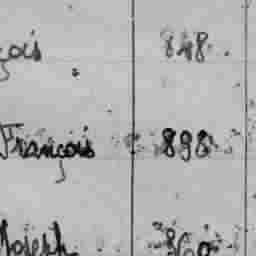 çois 848.
François 898
Joseph 860